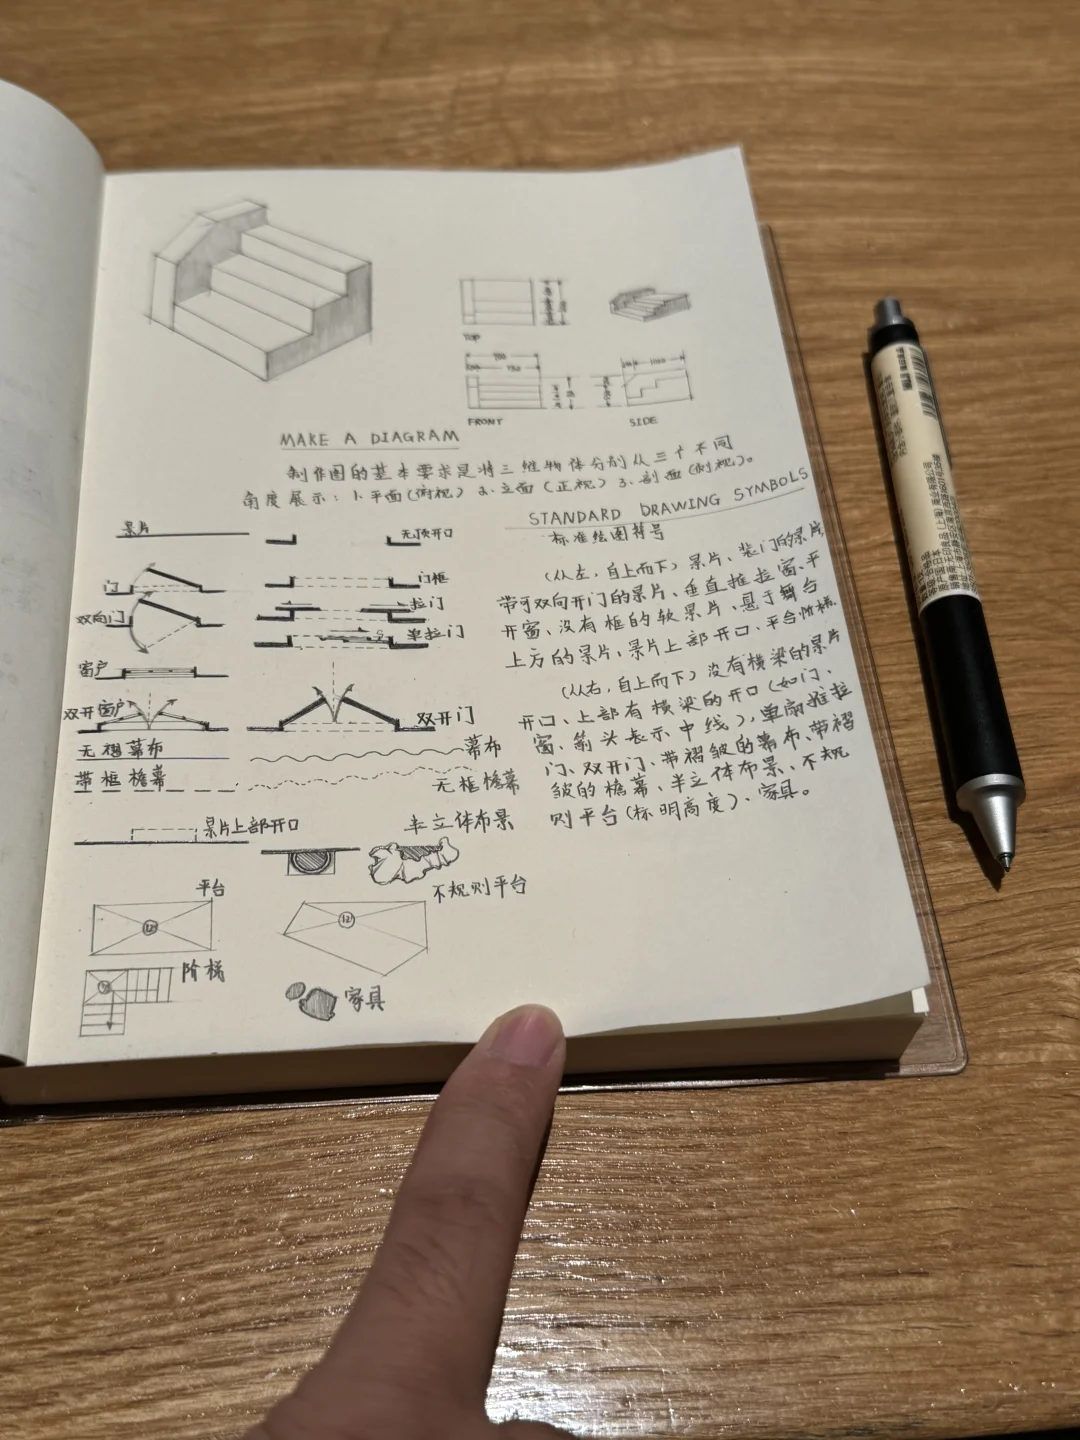 TOP
FRONT
SIDE
MAKE A DIAGRAM
制作图的基本要求是将三维物体分别从三个不同
角度展示：1.平面(俯视) 2.立面(正视) 3.剖面(侧视)。
STANDARD DRAWING SYMBOLS
标准绘图符号
景片
无顶开口
门
门框
双向门
拉门
单拉门
窗户
双开窗户
双开门
无褶幕布
幕布
带框檐幕
无框檐幕
景片上部开口
半立体布景
平台
12
不规则平台
12
阶梯
家具
(从左，自上而下)景片、装门的景片、
带可双向开门的景片、垂直推拉窗、平
开窗、没有框的软景片、悬于舞台
上方的景片、景片上部开口、平台阶梯.
(从右，自上而下)没有横梁的景片
开口、上部有横梁的开口(如门、
窗、箭头表示中线)，单扇推拉
门、双开门、带褶皱的幕布、带褶
皱的檐幕、半立体布景、不规
则平台(标明高度)、家具。